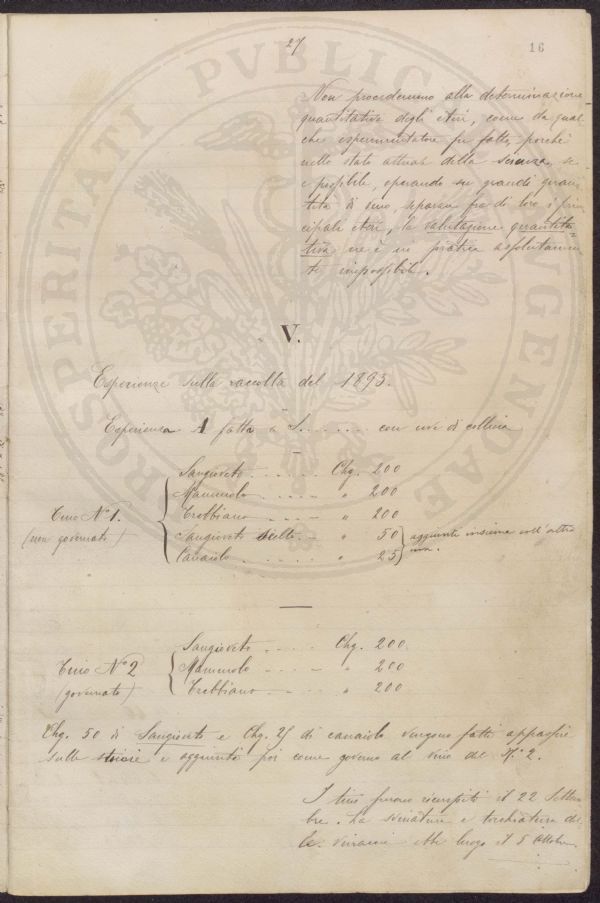 27
16
Non procederemo alla determinazione
quantitativa degli eteri, come da qual
che esperimentatore fu fatto, perchè
nello stato attuale della scienza, se
è possibile, operando su grandi quan
tità di vino, separare fra di loro i prin
cipali eteri, la valutazione quantita=
tiva ne è in pratica assolutamen
te impossibile.
V.
Esperienze sulla raccolta del 1893.
Esperienza A fatta a S....... con uve di collina
Tino N° 1.
(non governato)
Sangioveto ...... Chg. 200
Mammolo ..... " 200
Trebbiano ..... " 200
Sangioveto scelto.. " 50
Canaiolo ..... " 25
aggiunti insieme coll'altra
uva.
Tino N° 2
(governato)
Sangioveto .... Chg. 200
Mammolo .... " 200
Trebbiano .... " 200
Chg. 50 di Sangioveto e Chg. 25 di canaiolo vengono fatti appassire
sulle stuoie e aggiunti poi come governo al vino del N° 2.
I tini furono riempiti il 22 Settem
bre. La svinatura e torchiatura del
le vinacce ebbe luogo il 5 Ottobre
PROSPERITATI PVBLICAE AVGENDAE